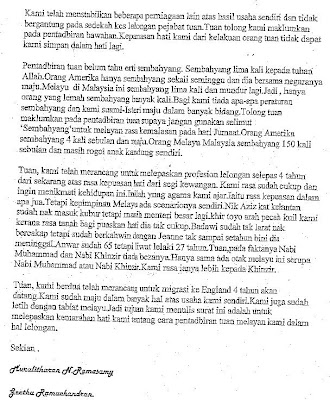 Kami telah menubuhkan beberapa perniagaan lain atas hasil usaha sendiri dan tidak
bergantung pada sedekah kes lelongan pejabat tuan.Tuan tolong kami maklumkan
pada pentadbiran bawahan.Keputusan hati kami dari kelakuan orang tuan tidak dapat
kami simpan dalam hati lagi.
Pentadbiran tuan belum tahu erti sembahyang. Sembahyang lima kali kepada tuhan
Allah.Orang Amerika hanya sembahyang sekali seminggu dan dia bersama negaranya
maju.Melayu di Malaysia ini sembahyang lima kali dan mundur lagi.Jadi , hanya
orang yang lemah sembahyang banyak kali.Bagi kami tiada apa-apa peraturan
sembahyang dan kami suami-isteri maju dalam banyak bidang.Tolong tuan
maklumkan pada pentadbiran tuan supaya jangan gunakan selimut
'Sembahyang'untuk melayan rasa kemalasan pada hari Jumaat.Orang Amerika
sembahyang 4 kali sebulan dan maju.Orang Melayu Malaysia sembahyang 150 kali
sebulan dan masih rogol anak kandung sendiri.
Tuan, kami telah merancang untuk melepaskan profesion lelongan selepas 4 tahun
dari sekarang atas rasa kepuasan hati dari segi kewangan. Kami rasa sudah cukup dan
ingin menikmati kehidupan ini.Inilah yang agama kami ajar.Iaitu rasa kepuasan dalam
apa jua.Tetapi kepimpinan Melayu ada scenarionya sendiri.Nik Aziz kat kelantan
sudah nak masuk kubur tetapi masih menteri besar lagi.khir toyo arah pecah kuil kami
kerana rasa tanah bagi puaskan hati dia tak cukup.Badawi sudah tak larat nak
bercakap tetapi sudah berkahwin dengan Jeanne tak sampai setahun bini dia
meninggal.Anwar sudah 65 tetapi liwat lelaki 27 tahun.Tuan,pada fikiranya Nabi
Muhammad dan Nabi Khinzir tiada bezanya.Hanya sama ada otak melayu ini serupa
Nabi Muhammad atau Nabi Khinzir.Kami rasa ianya lebih kepada Khinzir.
Tuan, kami berdua telah merancang untuk migrasi ke England 4 tahun akan
datang.Kami sudah maju dalam banyak hal atas usaha kami sendiri.Kami juga sudah
letih dengan tabiat melayu.Jadi tujuan kami menulis surat ini adalah untuk
melepaskan kemarahan hati kami tentang cara pentadbiran tuan melayan kami dalam
hal lelongan.
Sekian ,
Muralitharan N.Ramasamy
Geetha Ramachandran